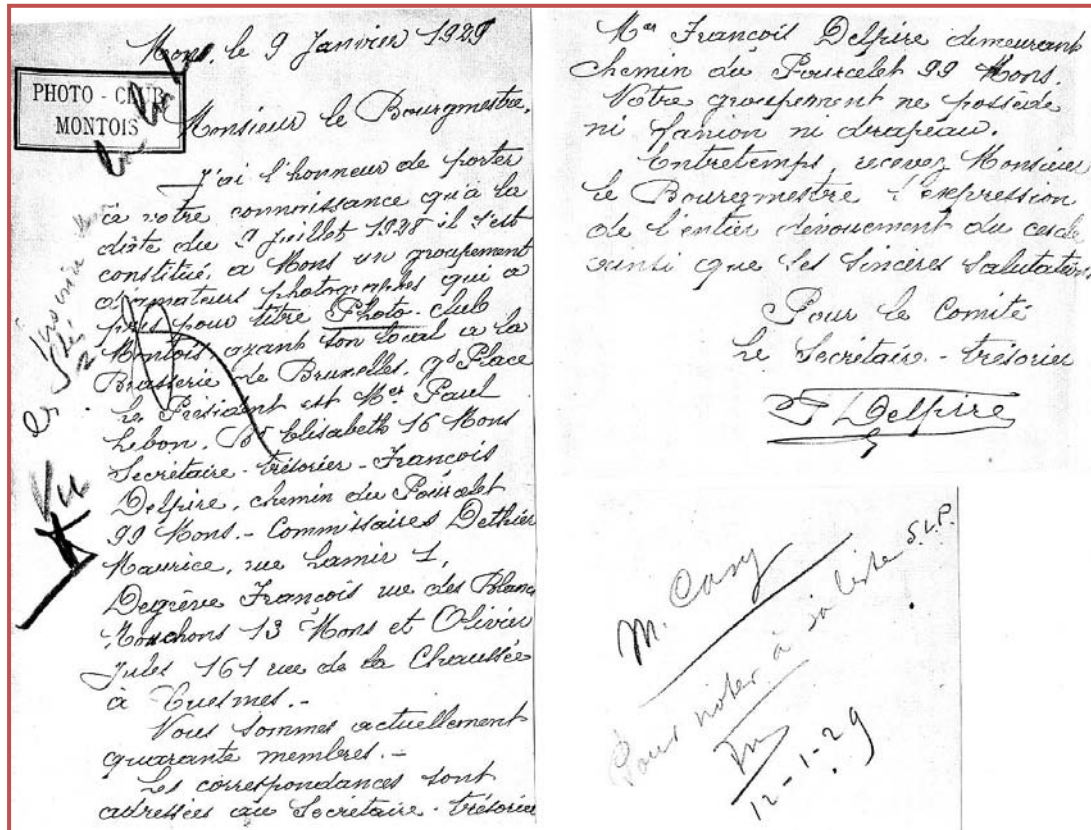 Mons, le 9 Janvier 1929
PHOTO - CLUB
MONTOIS
Monsieur le Bourgmestre,
J'ai l'honneur de porter
à votre connaissance qu'à la
date du 9 Juillet 1928 il s'est
constitué, a Mons un groupement
d'amateurs photographes qui a
pris pour titre Photo-club
Montois ayant son local a la
Brasserie de Bruxelles, gd Place
Le Président est Mer Paul
Lebon, Bd Elisabeth 16 Mons
Secrétaire - trésorier - François
Delpire, chemin du Pourcelet
99 Mons. - Commissaires Dethier
Maurice, rue Lamir 1,
Degrève François rue des Blancs
Mouchons 13 Mons et Olivier
Jules 161 rue de la Chaussée
à Cuesmes. -
Nous sommes actuellement
quarante membres. -
Les correspondances sont
adressées au Secrétaire - trésorier
Vu
Mer François Delpire demeurant
chemin du Pourcelet 99 Mons.
Notre groupement ne possède
ni fanion ni drapeau.
Entretemps, recevez Monsieur
le Bourgmestre l'expression
de l'entier dévouement du cercle
ainsi que ses sincères salutations
Pour le Comité
Le Secrétaire - trésorier
F Delpire
M.
Pour noter à sa liste S.V.P.
12-1-29